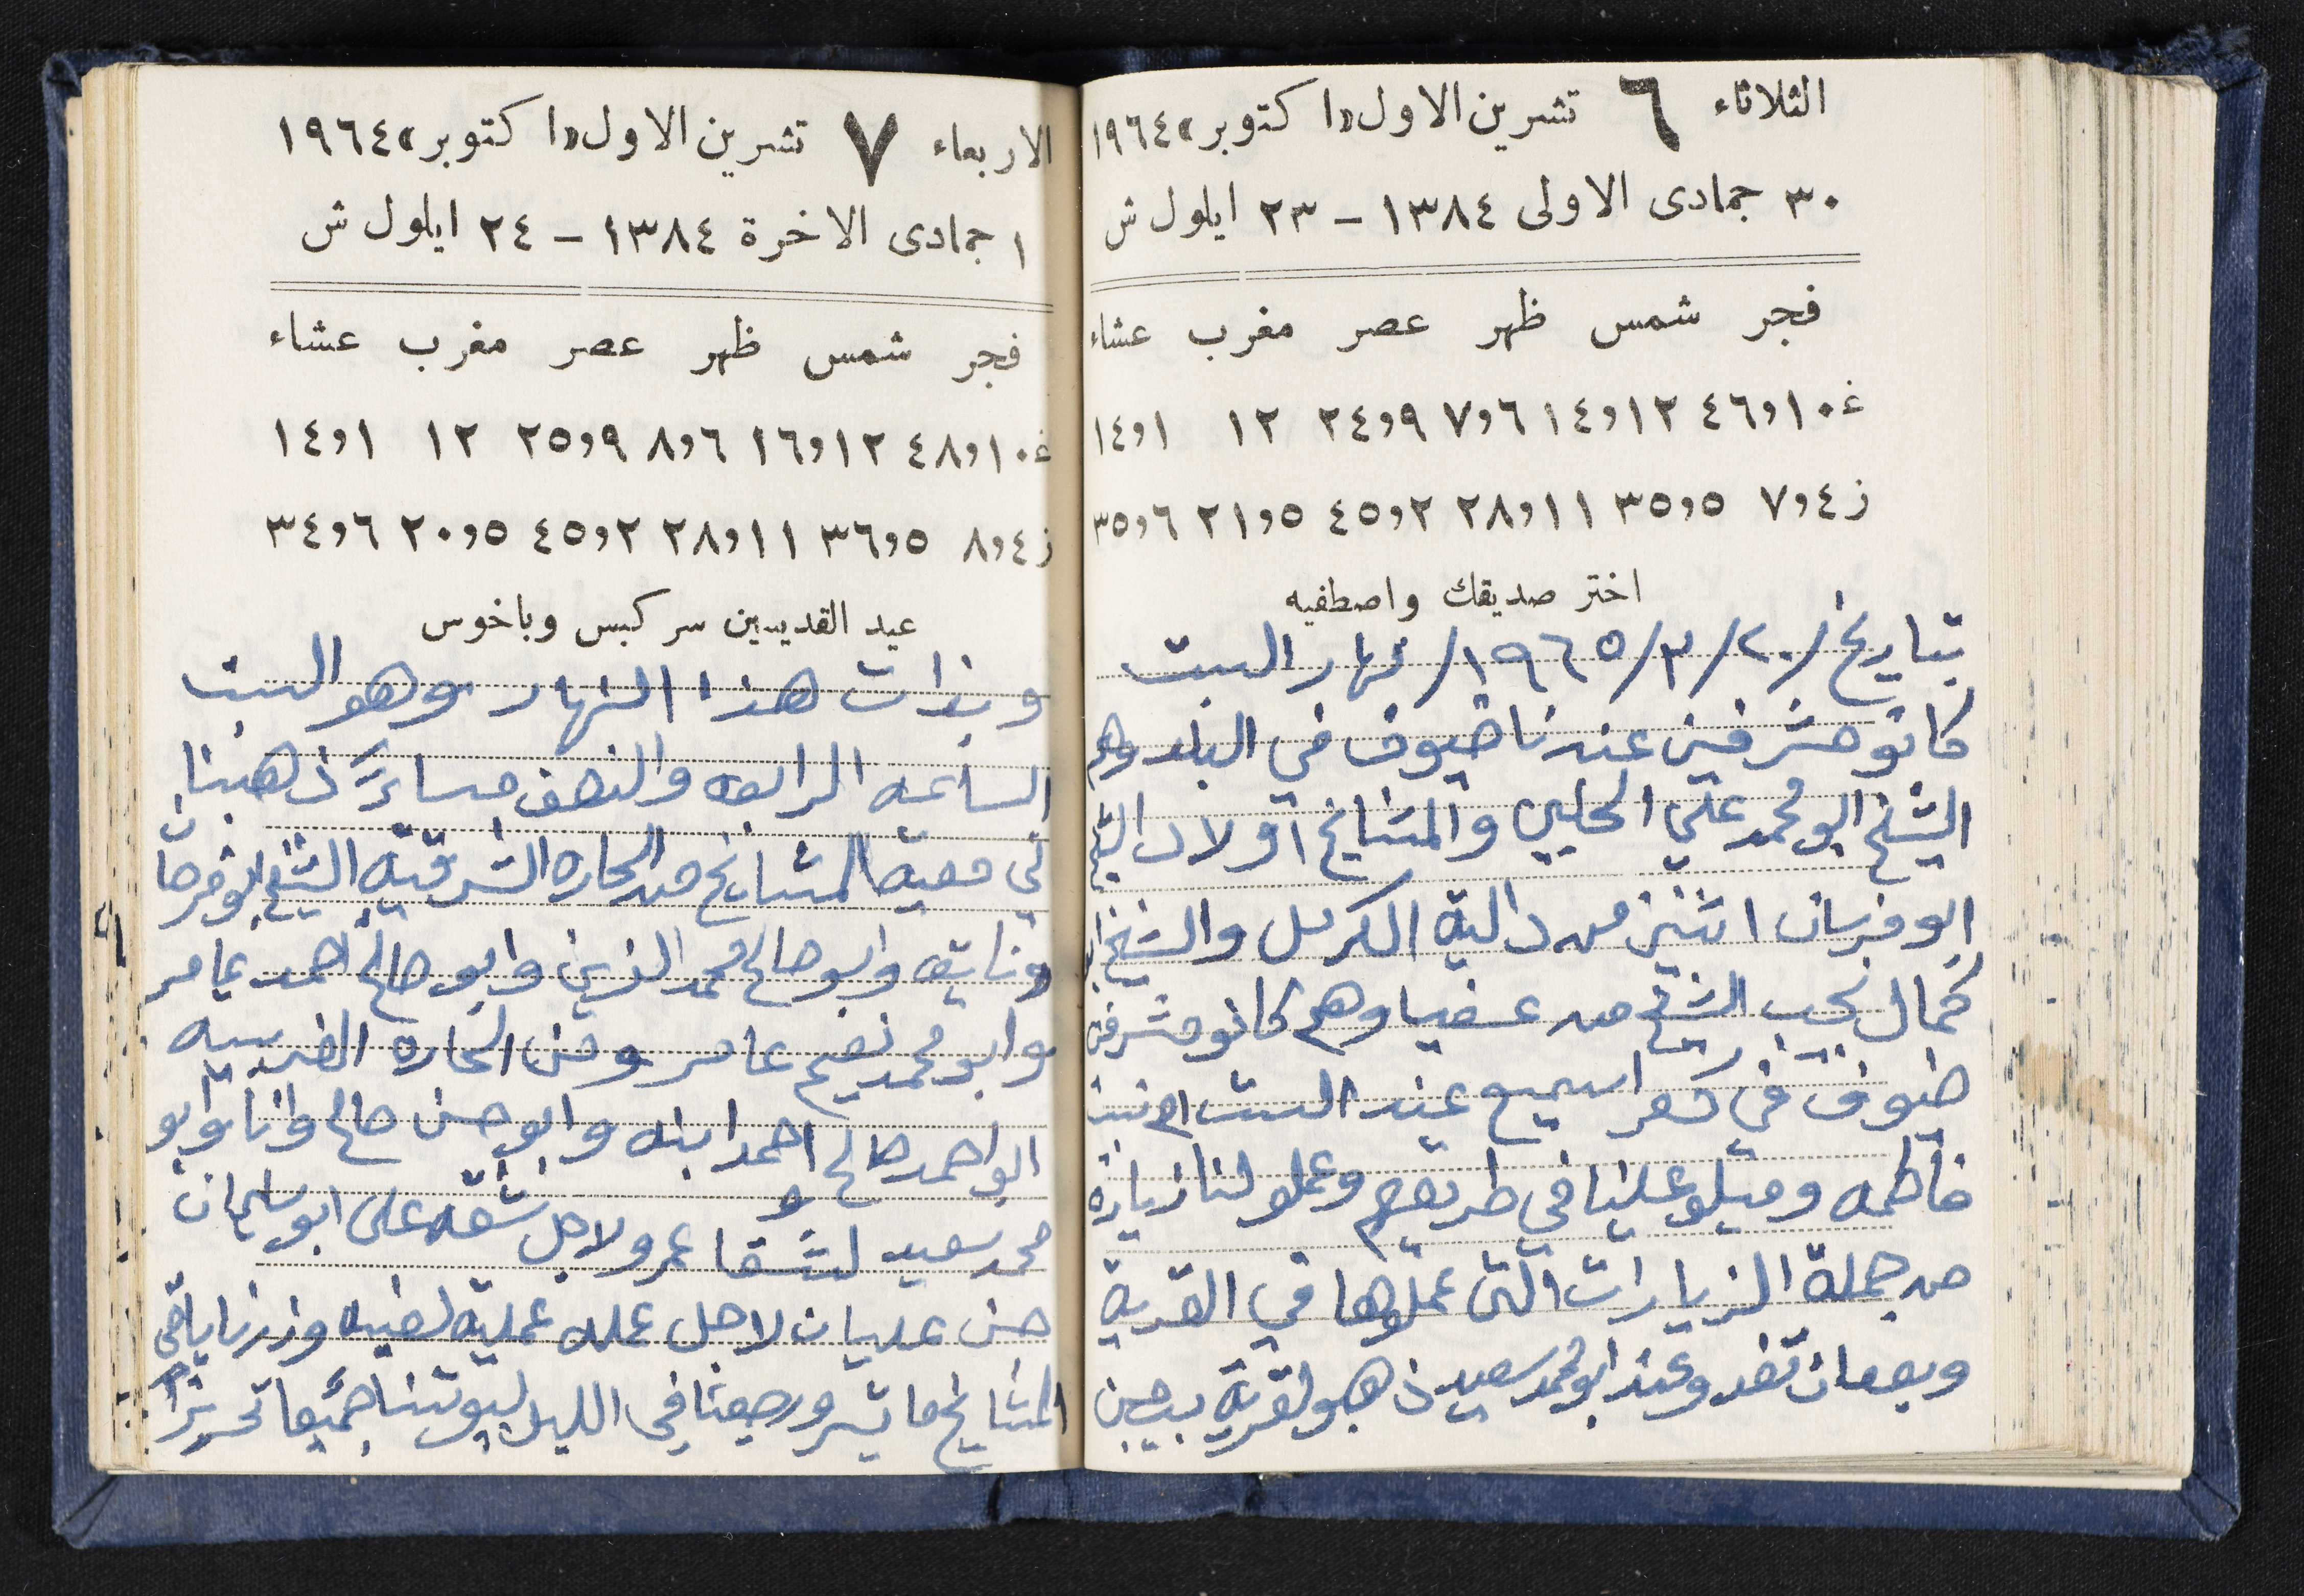 الثلاثاء ٦ تشرين الاول «اكتوبر» ١٩٦٤
٣٠ جمادى الاولى ١٣٨٤ – ٢٣ ايلول ش
فجر شمس ظهر عصر مغرب عشاء
غ ١٠و٤٦ ١٢و١٤ ٦و٧ ٩و٢٤ ١٢ ١و١٤
ز ٤و٧ ٥و٣٥ ١١و٢٨ ٢و٤٥ ٥و٢١ ٦و٣٥
اختر صديقك واصطفيه
بتاريخ /٢٠/٣/١٩٦٥/ نهار السبت
كانو مشرفين عندنا ضيوف في البلد وهم
الشيخ ابو محمد علي الحلبي والمشايخ اولاد الشيخ
ابو فرسان اثنين من دالية الكرمل والشيخ ابو
كمال نجيب الشيخ من عسفيا وهم كانو مشرفين
ضيوف في كفر اسميع عند الست ام نسيب
فاطمه وميلو علينا في طريقهم وعملو لنا زياره
من جملة الزيارات التي عملوها في القرية
وبعد ان تغدو عند ابو محمد سعيد ذهبو لقرية بيت جن
الاربعاء ٧ تشرين الاول «اكتوبر» ١٩٦٤
١ جمادى الاخرة ١٣٨٤ – ٢٤ ايلول ش
فجر شمس ظهر عصر مغرب عشاء
غ ١٠و٤٨ ١٢و١٦ ٦و٨ ٩و٢٥ ١٢ ١و١٤
ز ٤و٨ ٥و٣٦ ١١و٢٨ ٢و٤٥ ٥و٢٠ ٦و٣٤
عيد القديسين سركيس وباخوس
وبذات هذا النهار وهو السبت
الساعه الرابعه والنصف مساءً ذهبنا
في معية المشايخ من الحاره الشرقيه الشيخ ابو فرحان
ونايف وابو صالح محمد الزين وابو صالح احمد عامر
وابو محمد نعيم عامر ومن الحاره الغربيه
ابو احمد صالح احمد ابنه وابو حسن صالح وانا وابو
محمد سعيد لشفا عمرو ولاجل شقه على ابو سلمان
حسن عليان لاجل عمله عملية لعنيه وزرنا باقي
المشايخ ما تيسر ورجعنا في الليل لبيوتنا جميعا تحريرا